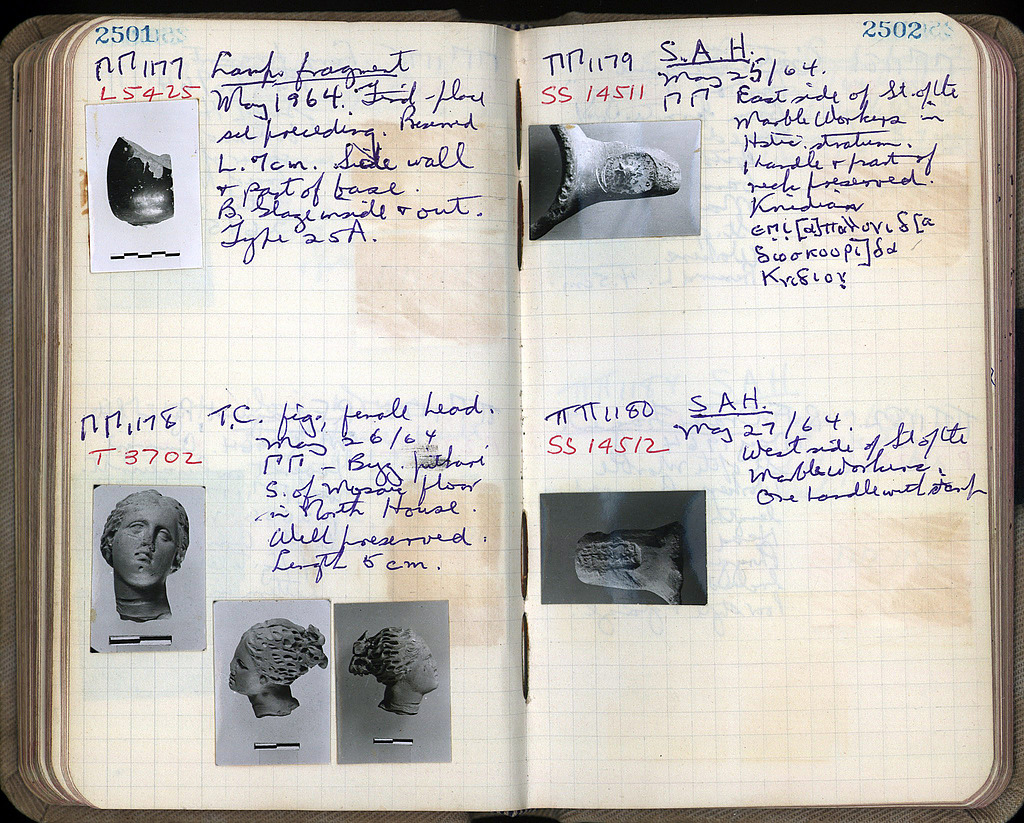 2501
ΠΠ 1177
L 5425
Lamp fragment
May 1964. Find-place
see preceding. Preserved
L. 7cm. Side wall
+ part of base.
Bl. glaze inside + out.
Type 25A.
ΠΠ 1178
T 3702
T.C. fig, female head.
May 26/64
ΠΠ – Byz.
S. of Mosaic floor
in North House.
Well preserved.
Length 5 cm.
2502
ΠΠ 1179
SS 14511
S.A.H.
May 25/64.
ΠΠ East side of St. of the
Marble Workers in
stratum.
Handle + part of
neck preserved.
Knidian
επι [α]πολωνιδ[α
διοσκουρι]δα
Κνιδιον
ΠΠ 1180
SS 14512
S A H.
May 27/64.
West side of St. of the
Marble Workers.
One handle with stamp